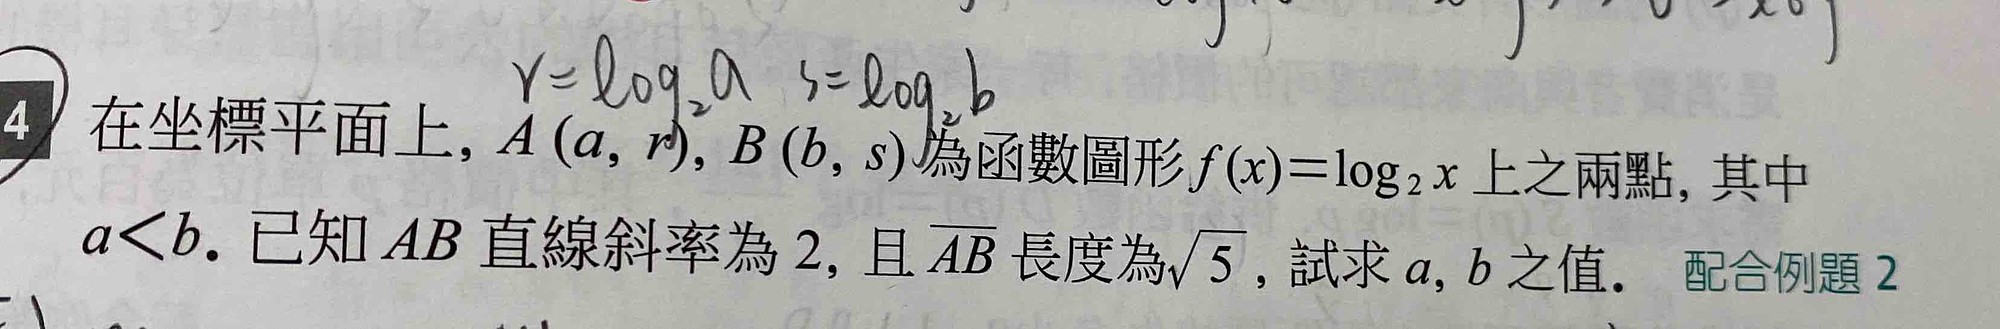 r=log₂a s=log₂b
4 在坐標平面上, A (a, r), B (b, s) 為函數圖形 f(x)=log₂ x 上之兩點, 其中
a<b. 已知 AB 直線斜率為 2, 且 \overline{AB} 長度為√5, 試求 a, b 之值. 配合例題 2